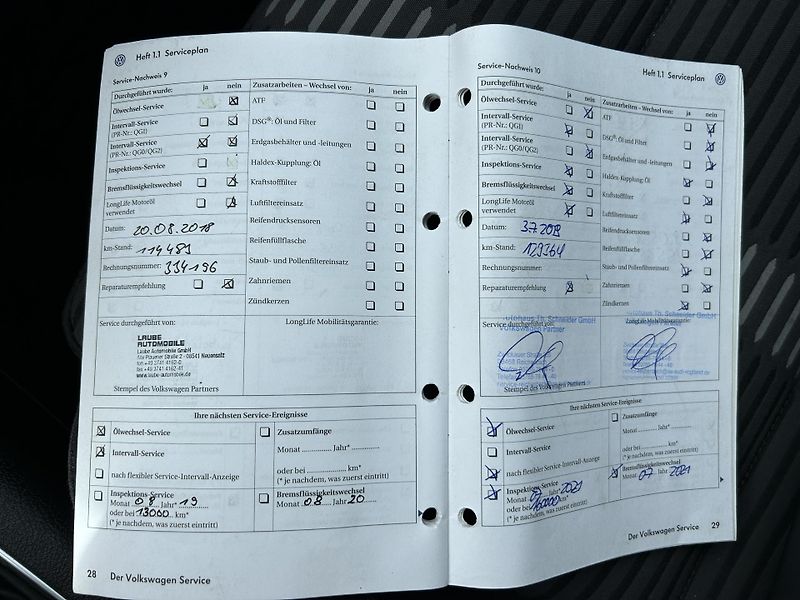 Heft 1.1 Serviceplan
Service-Nachweis 9
Durchgeführt wurde:
ja
nein
Ölwechsel-Service
Intervall-Service
(PR-Nr.: QG1)
Intervall-Service
(PR-Nr.: QG0/QG2)
Inspektions-Service
Bremsflüssigkeitswechsel
LongLife Motoröl
verwendet
Datum: 20.08.2018
km-Stand: 114489
Rechnungsnummer: 334196
Reparaturempfehlung
Zusatzarbeiten – Wechsel von:
ja
nein
ATF
DSG®: Öl und Filter
Erdgasbehälter und -leitungen
Haldex-Kupplung: Öl
Kraftstofffilter
Luftfiltereinsatz
Reifendrucksensoren
Reifenfüllflasche
Staub- und Pollenfiltereinsatz
Zahnriemen
Zündkerzen
Service durchgeführt von:
LongLife Mobilitätsgarantie:
LAUBE
AUTOMOBILE
Laube Automobile GmbH
www.laube-automobile.de
Stempel des Volkswagen Partners
Ihre nächsten Service-Ereignisse
Ölwechsel-Service
Intervall-Service
nach flexibler Service-Intervall-Anzeige
Inspektions-Service
Monat 08 Jahr* 19
oder bei 13000 km*
(* je nachdem, was zuerst eintritt)
Zusatzumfänge
Monat ............ Jahr* ............
oder bei ............ km*
(* je nachdem, was zuerst eintritt)
Bremsflüssigkeitswechsel
Monat 08 Jahr 20
28
Der Volkswagen Service
Heft 1.1 Serviceplan
Service-Nachweis 10
Durchgeführt wurde:
ja
nein
Ölwechsel-Service
Intervall-Service
(PR-Nr.: QG1)
Intervall-Service
(PR-Nr.: QG0/QG2)
Inspektions-Service
Bremsflüssigkeitswechsel
LongLife Motoröl
verwendet
Datum: 3.7.2019
km-Stand: 129364
Rechnungsnummer:
Reparaturempfehlung
Zusatzarbeiten – Wechsel von:
ja
nein
ATF
DSG®: Öl und Filter
Erdgasbehälter und -leitungen
Haldex-Kupplung: Öl
Kraftstofffilter
Luftfiltereinsatz
Reifendrucksensoren
Reifenfüllflasche
Staub- und Pollenfiltereinsatz
Zahnriemen
Zündkerzen
Service durchgeführt von:
LongLife Mobilitätsgarantie:
Th. Schneider GmbH
Volkswagen Partner
Th. Schneider GmbH
Stempel des Volkswagen Partners
Ihre nächsten Service-Ereignisse
Ölwechsel-Service
Intervall-Service
nach flexibler Service-Intervall-Anzeige
Inspektions-Service
Monat 07 Jahr 2021
oder bei 160000 km*
(* je nachdem, was zuerst eintritt)
Zusatzumfänge
Monat ............ Jahr* ............
oder bei ............ km*
(* je nachdem, was zuerst eintritt)
Bremsflüssigkeitswechsel
Monat 07 Jahr 2021
Der Volkswagen Service
29